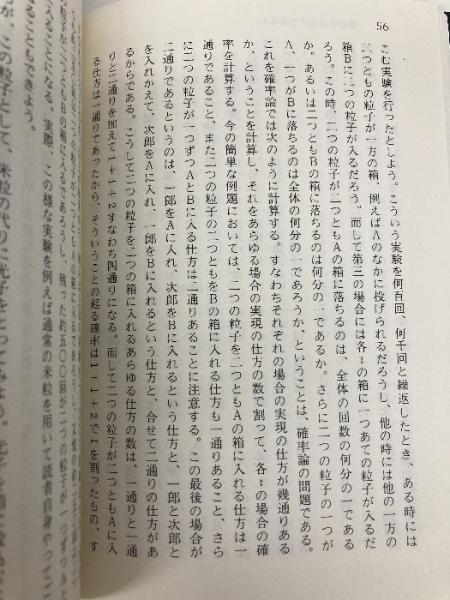 56
こむ実験を行ったとしよう。こういう実験を何百回、何千回と繰返したとき、ある時には
二つともの粒子が一方の箱、例えばAのなかに投げられるだろうし、他の時には他の一方の
箱Bに二つの粒子が入るだろう。而して第三の場合には各〻の箱に一つあての粒子が入るだ
ろう。この時、二つの粒子が二つともAの箱に落ちるのは、全体の回数の何分の一である
か。あるいは二つともBの箱に落ちるのは何分の一であるか。さらに二つの粒子の一つが
A、一つがBに落ちるのは全体の何分の一であろうか、ということは、確率論の問題である。
これを確率論では次のように計算する。すなわちそれぞれの場合の実現の仕方が幾通りある
か、ということを計算し、それをあらゆる場合の実現の仕方の数で割って、各〻の場合の確
率を計算する。今の簡単な例題においては、二つの粒子を二つともAの箱に入れる仕方は一
通りであること、また二つの粒子の二つともをBの箱に入れる仕方も一通りあること、さら
に二つの粒子が一つずつAとBとに入る仕方は二通りあることに注意する。この最後の場合が
二通りであるというのは、一郎をAに入れ、次郎をBに入れるという仕方と、一郎と次郎と
を入れかえて、次郎をAに入れ、一郎をBに入れるという仕方と、合せて二通りの仕方があ
るからである。こうして二つの粒子を二つの箱に入れるあらゆる仕方の数は、一通りと一通
りと二通りを加えて1+1+2すなわち四通りになる。而して二つの粒子が二つともAに入
る仕方は一通りであったから、そういうことの起る確率は1+1+2で1を割ったもの、す